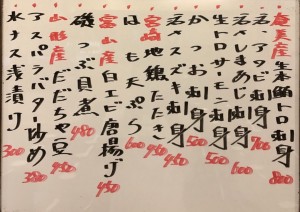 奄美産 生本鮪トロ刺身 800
活〆アタビ刺身 700
生トレまアジ刺身 600
トロサーモン刺身 500
かつお刺身 500
活〆スズキ刺身 450
宮崎地鶏たたき 450
はも天ぷら 600
富山産白エビ唐揚げ 450
磯つぶ貝煮 480
山形産だだちゃ豆 450
アスパラバター炒め 380
水ナス浅漬り 300